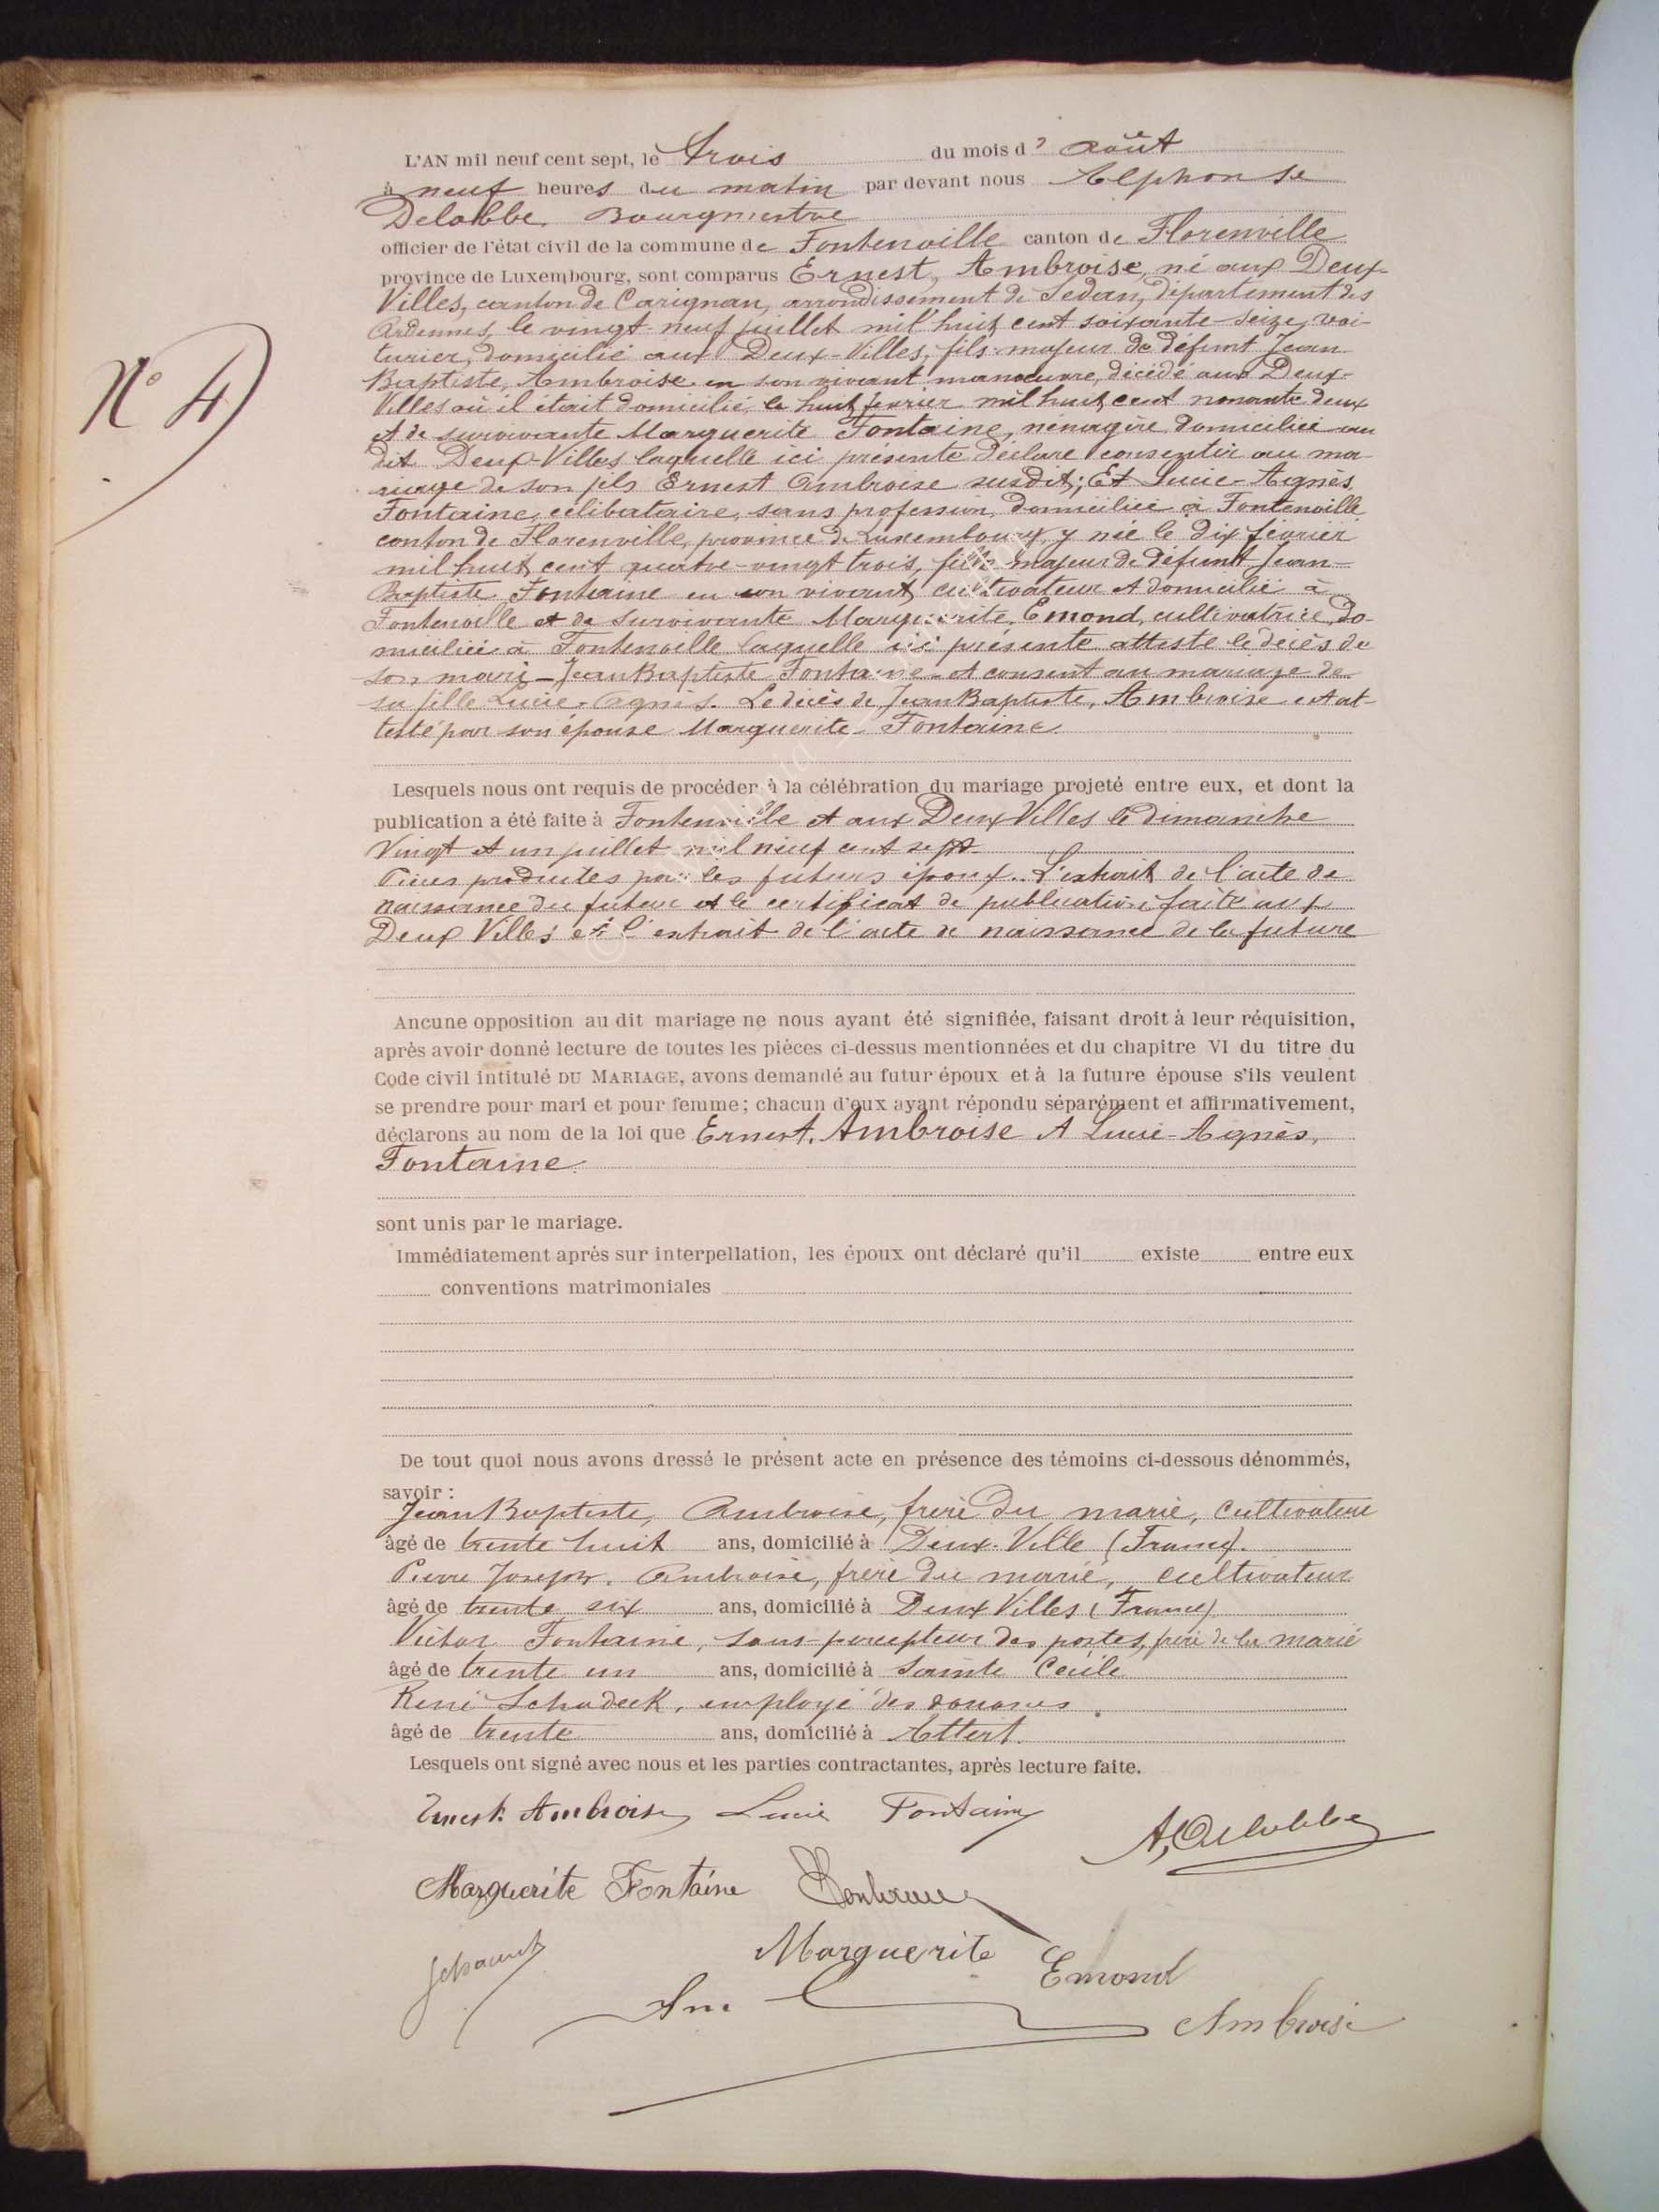 L'AN mil neuf cent sept, le Trois du mois d' août
à neuf heures du matin par devant nous Alphonse
Delobbe, Bourgmestre
officier de l'état civil de la commune de Fontenoille canton de Florenville
province de Luxembourg, sont comparus Ernest, Ambroise, né aux Deux-
Villes, canton de Carignan, arrondissement de Sedan, département des
Ardennes, le vingt-neuf juillet mil huit cent soixante-seize, voi-
turier, domicilié aux Deux-Villes, fils majeur de défunt Jean
Baptiste, Ambroise en son vivant manoeuvre, décédé aux Deux-
Villes où il était domicilié le huit février mil huit cent nonante deux
et de survivante Marguerite Fontaine, ménagère domiciliée au
dit Deux-Villes laquelle ici présente déclare consentir au ma-
riage de son fils Ernest Ambroise susdit; Et Lucie-Agnès
Fontaine, célibataire, sans profession, domiciliée à Fontenoille
canton de Florenville, province de Luxembourg, y née le dix février
mil huit cent quatre-vingt trois, fille majeur de défunt Jean-
Baptiste Fontaine en son vivant, cultivateur et domicilié à
Fontenoille et de survivante Marguerite, Emond, cultivatrice, do-
miciliée à Fontenoille laquelle ici présente atteste le décès de
son mari Jean Baptiste Fontaine et consent au mariage de
sa fille Lucie-Agnès. Le décès de Jean Baptiste, Ambroise est at-
testé par son épouse Marguerite Fontaine
Lesquels nous ont requis de procéder à la célébration du mariage projeté entre eux, et dont la
publication a été faite à Fontenoille et aux Deux Villes le dimanche
Vingt et un juillet mil neuf cent sept
Pièces produites par les futurs époux. L'extrait de l'acte de
naissance du futur et le certificat de publication faite aux
Deux Villes et l'extrait de l'acte de naissance de la future
Ancune opposition au dit mariage ne nous ayant été signifiée, faisant droit à leur réquisition,
après avoir donné lecture de toutes les pièces ci-dessus mentionnées et du chapitre VI du titre du
Code civil intitulé DU MARIAGE, avons demandé au futur époux et à la future épouse s'ils veulent
se prendre pour mari et pour femme; chacun d'eux ayant répondu séparément et affirmativement,
déclarons au nom de la loi que Ernest, Ambroise et Lucie-Agnès,
Fontaine
sont unis par le mariage.
Immédiatement après sur interpellation, les époux ont déclaré qu'il existe entre eux
conventions matrimoniales
De tout quoi nous avons dressé le présent acte en présence des témoins ci-dessous dénommés,
savoir :
Jean Baptiste, Ambroise, frère du marié, cultivateur
âgé de trente huit ans, domicilié à Deux-Ville (France).
Pierre Joseph. Ambroise, frère du marié, cultivateur
âgé de trente six ans, domicilié à Deux Villes (France)
Victor Fontaine, sous-percepteur des postes, frère de la marié
âgé de trente un ans, domicilié à Sainte Cécile
René Schadeck, employé des douanes
âgé de trente ans, domicilié à Attert.
Lesquels ont signé avec nous et les parties contractantes, après lecture faite.
Ernest Ambroise Lucie Fontaine
A, Delobbe
Marguerite Fontaine
Marguerite Emond
Ambroise
N° 4